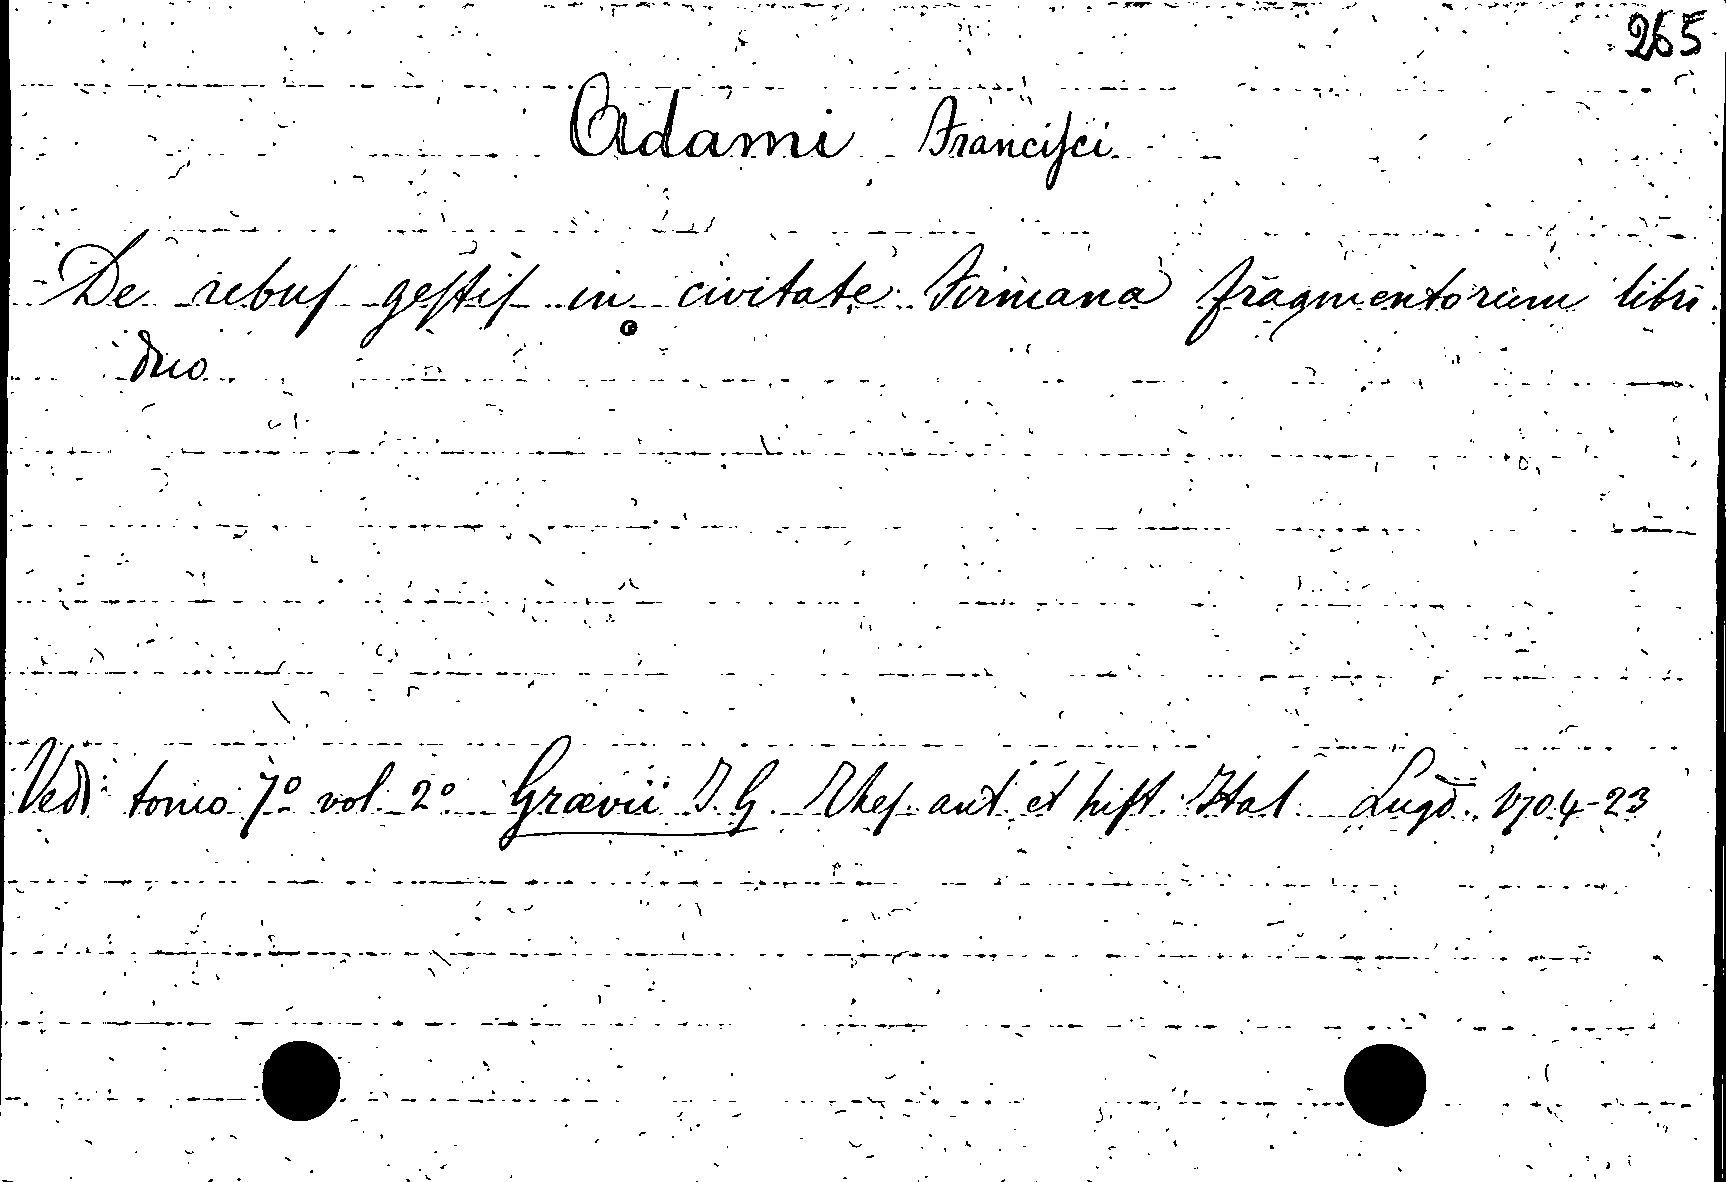 265
Adami Francisci
De rebus gestis in civitate Firmana fragmentorum libri
duo
Vedi tomo 7º vol. 2º Grævii J. G. Thes. ant. et hist. Ital. Lugd. 1704-23